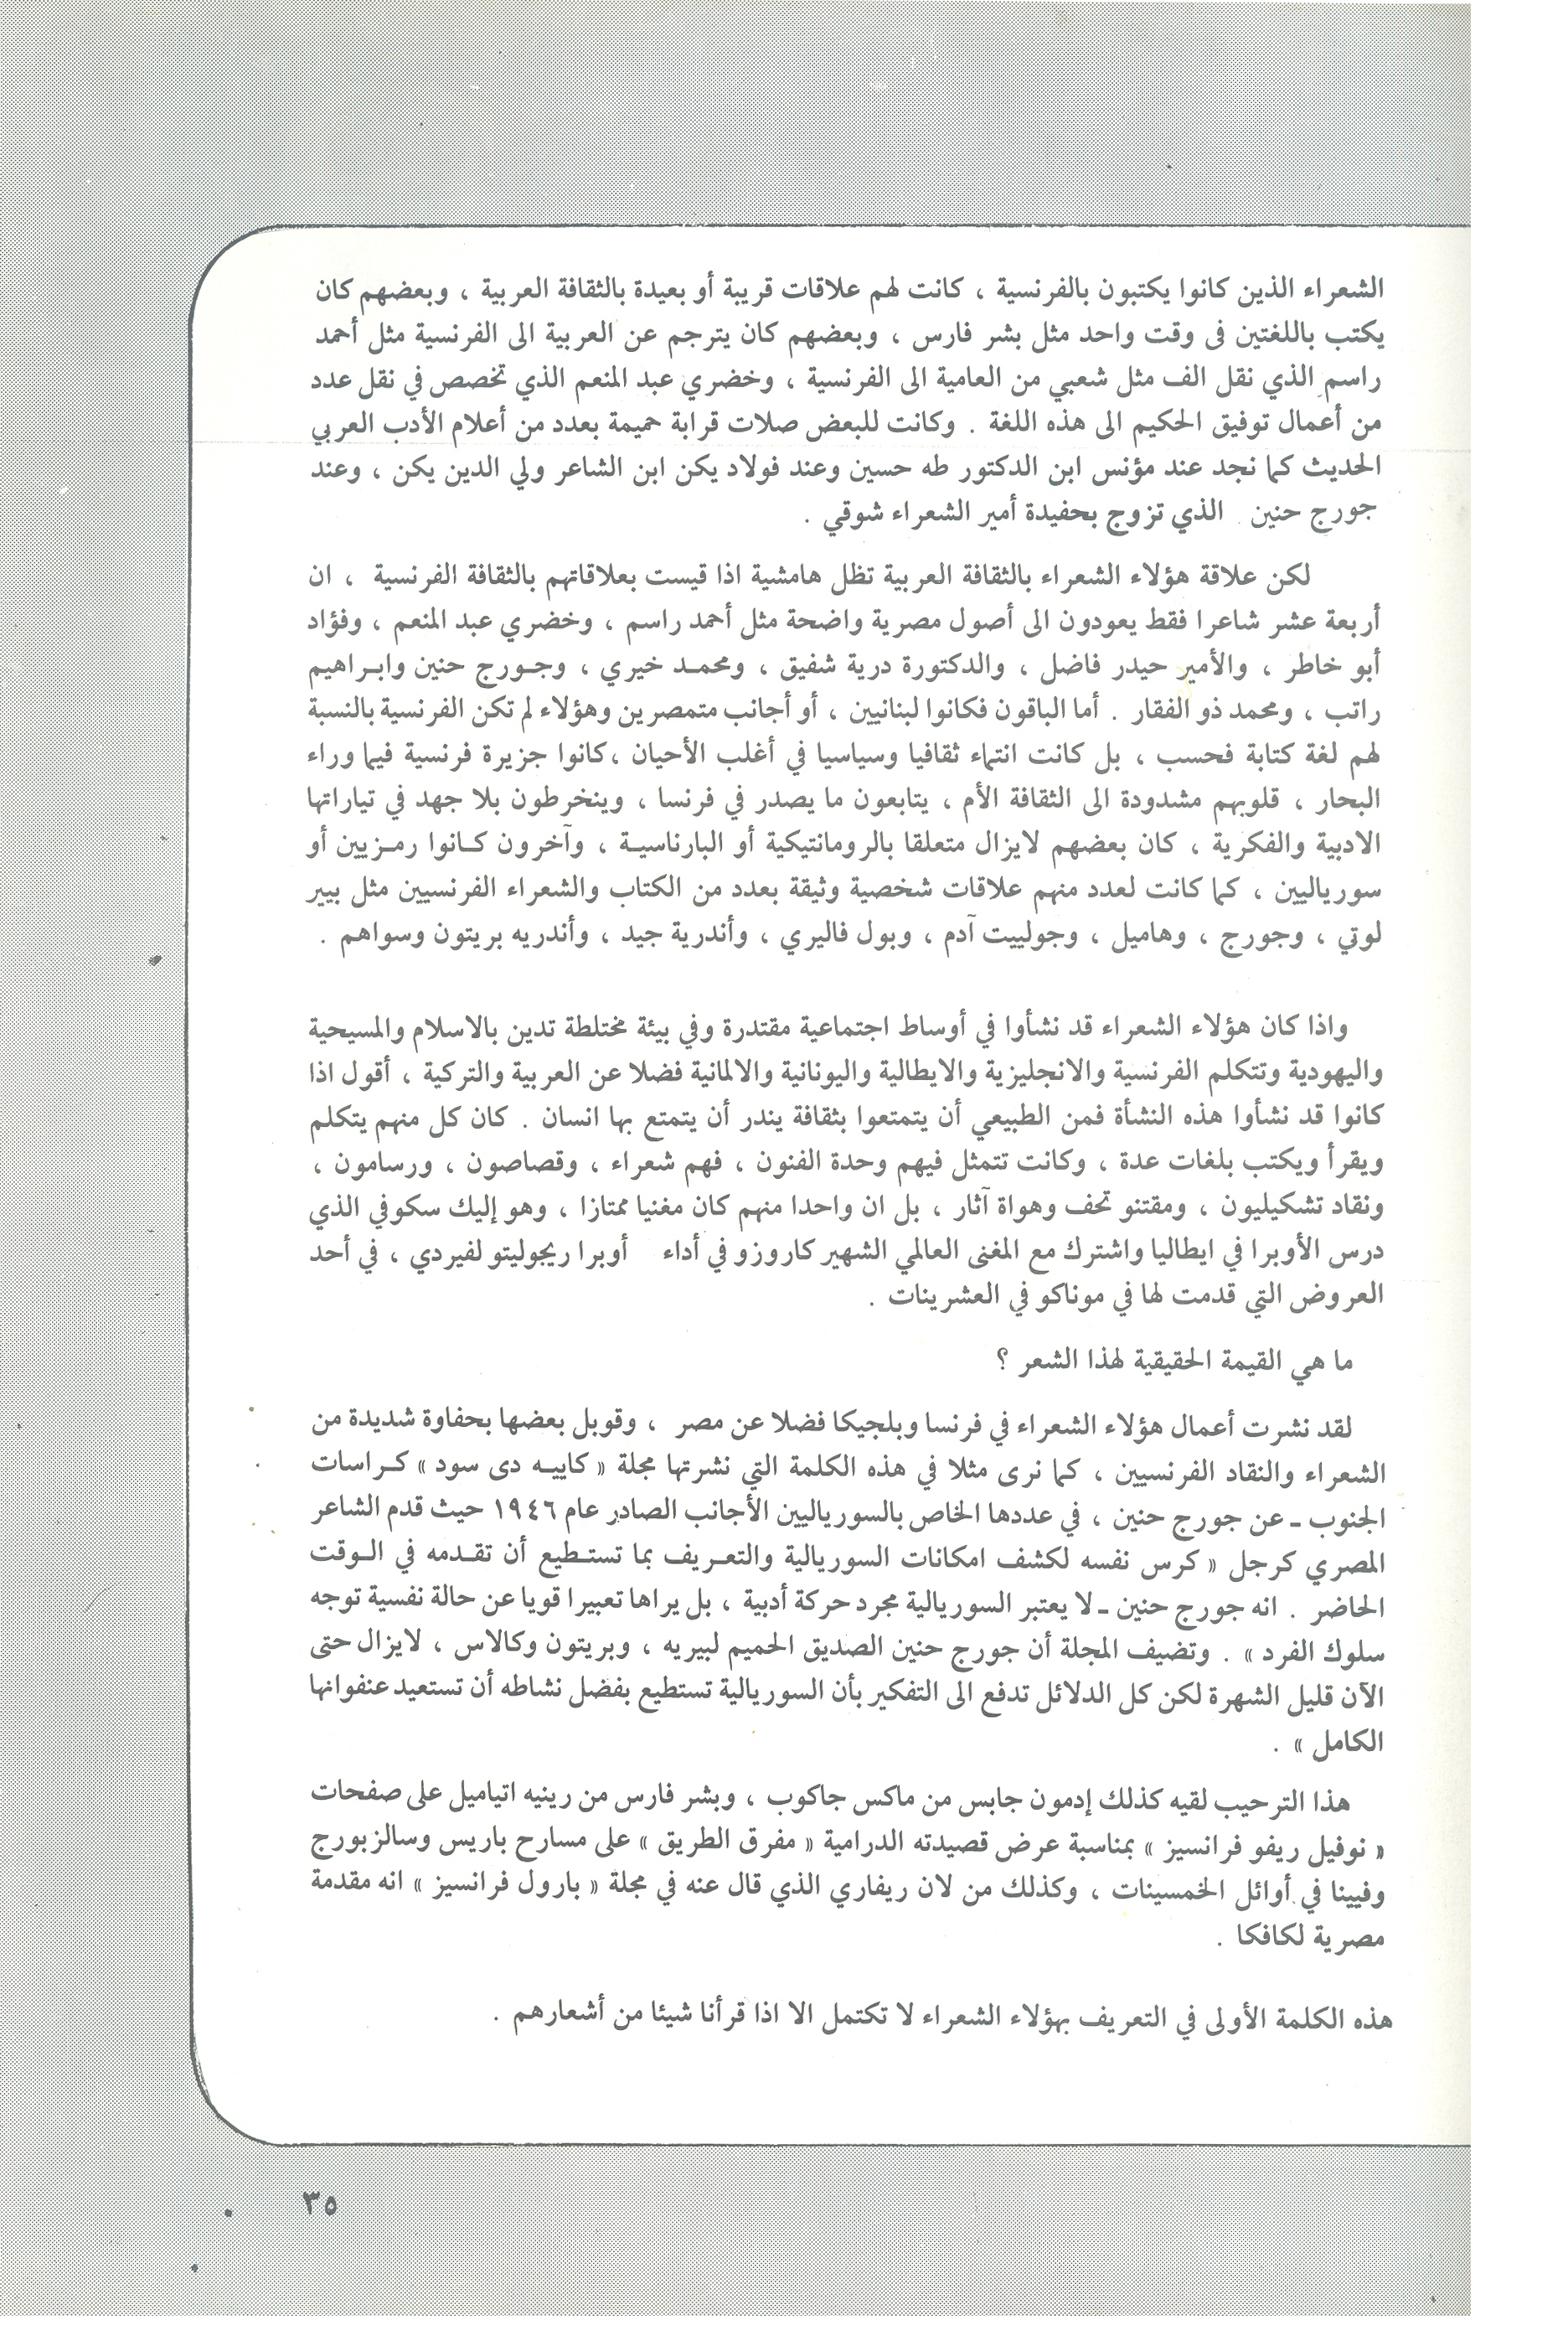 الشعراء الذين كانوا يكتبون بالفرنسية ، كانت لهم علاقات قريبة أو بعيدة بالثقافة العربية ، وبعضهم كان
يكتب باللغتين فى وقت واحد مثل بشر فارس ، وبعضهم كان يترجم عن العربية الى الفرنسية مثل أحمد
راسم الذي نقل الف مثل شعبي من العامية الى الفرنسية ، وخضري عبد المنعم الذي تخصص في نقل عدد
من أعمال توفيق الحكيم الى هذه اللغة . وكانت للبعض صلات قرابة حميمة بعدد من أعلام الأدب العربي
الحديث كما نجد عند مؤنس ابن الدكتور طه حسين وعند فولاد يكن ابن الشاعر ولي الدين يكن ، وعند
جورج حنين الذي تزوج بحفيدة أمير الشعراء شوقي .
لكن علاقة هؤلاء الشعراء بالثقافة العربية تظل هامشية اذا قيست بعلاقاتهم بالثقافة الفرنسية ، ان
أربعة عشر شاعرا فقط يعودون الى أصول مصرية واضحة مثل أحمد راسم ، وخضري عبد المنعم ، وفؤاد
أبو خاطر ، والأمير حيدر فاضل ، والدكتورة درية شفيق ، ومحمـد خيري ، وجـورج حنين وابـراهيم
راتب ، ومحمد ذو الفقار . أما الباقون فكانوا لبنانيين ، أو أجانب متمصرين وهؤلاء لم تكن الفرنسية بالنسبة
لهم لغة كتابة فحسب ، بل كانت انتماء ثقافيا وسياسيا في أغلب الأحيان ،كانوا جزيرة فرنسية فيما وراء
البحار ، قلوبهم مشدودة الى الثقافة الأم ، يتابعون ما يصدر في فرنسا ، وينخرطون بلا جهد في تياراتها
الادبية والفكرية ، كان بعضهم لايزال متعلقا بالرومانتيكية أو البارناسيـة ، وآخرون كـانوا رمـزيين أو
سورياليين ، كما كانت لعدد منهم علاقات شخصية وثيقة بعدد من الكتاب والشعراء الفرنسيين مثل بيير
لوتي ، وجورج ، وهاميل ، وجولييت آدم ، وبول فاليري ، وأندرية جيد ، وأندريه بريتون وسواهم .
واذا كان هؤلاء الشعراء قد نشأوا في أوساط اجتماعية مقتدرة وفي بيئة مختلطة تدين بالاسلام والمسيحية
واليهودية وتتكلم الفرنسية والانجليزية والايطالية واليونانية والالمانية فضلا عن العربية والتركية ، أقول اذا
كانوا قد نشأوا هذه النشأة فمن الطبيعي أن يتمتعوا بثقافة يندر أن يتمتع بها انسان . كان كل منهم يتكلم
ويقرأ ويكتب بلغات عدة ، وكانت تتمثل فيهم وحدة الفنون ، فهم شعراء ، وقصاصون ، ورسامون ،
ونقاد تشكيليون ، ومقتنو تحف وهواة آثار ، بل ان واحدا منهم كان مغنيا ممتازا ، وهو إليك سكوفي الذي
درس الأوبرا في ايطاليا واشترك مع المغنى العالمي الشهير كاروزو في أداء أوبرا ريجوليتو لفيردي ، في أحد
العروض التي قدمت لها في موناكو في العشرينات .
ما هي القيمة الحقيقية لهذا الشعر ؟
لقد نشرت أعمال هؤلاء الشعراء في فرنسا وبلجيكا فضلا عن مصر ، وقوبل بعضها بحفاوة شديدة من
الشعراء والنقاد الفرنسيين ، كما نرى مثلا في هذه الكلمة التي نشرتها مجلة « كاييـه دى سود » كـراسات
الجنوب ـ عن جورج حنين ، في عددها الخاص بالسورياليين الأجانب الصادر عام ١٩٤٦ حيث قدم الشاعر
المصري كرجل « كرس نفسه لكشف امكانات السوريالية والتعـريف بما تستـطيع أن تقـدمه في الـوقت
الحاضر . انه جورج حنين ـ لا يعتبر السوريالية مجرد حركة أدبية ، بل يراها تعبيرا قويا عن حالة نفسية توجه
سلوك الفرد » . وتضيف المجلة أن جورج حنين الصديق الحميم لبيريه ، وبريتون وكالاس ، لايزال حتى
الآن قليل الشهرة لكن كل الدلائل تدفع الى التفكير بأن السوريالية تستطيع بفضل نشاطه أن تستعيد عنفوانها
الكامل » .
هذا الترحيب لقيه كذلك إدمون جابس من ماكس جاكوب ، وبشر فارس من رينيه اتياميل على صفحات
« نوفيل ريفو فرانسيز » بمناسبة عرض قصيدته الدرامية « مفرق الطريق » على مسارح باريس وسالزبورج
وفيينا في أوائل الخمسينات ، وكذلك من لان ريفاري الذي قال عنه في مجلة « بارول فرانسيز » انه مقدمة
مصرية لكافكا .
هذه الكلمة الأولى في التعريف بهؤلاء الشعراء لا تكتمل الا اذا قرأنا شيئا من أشعارهم .
٣٥